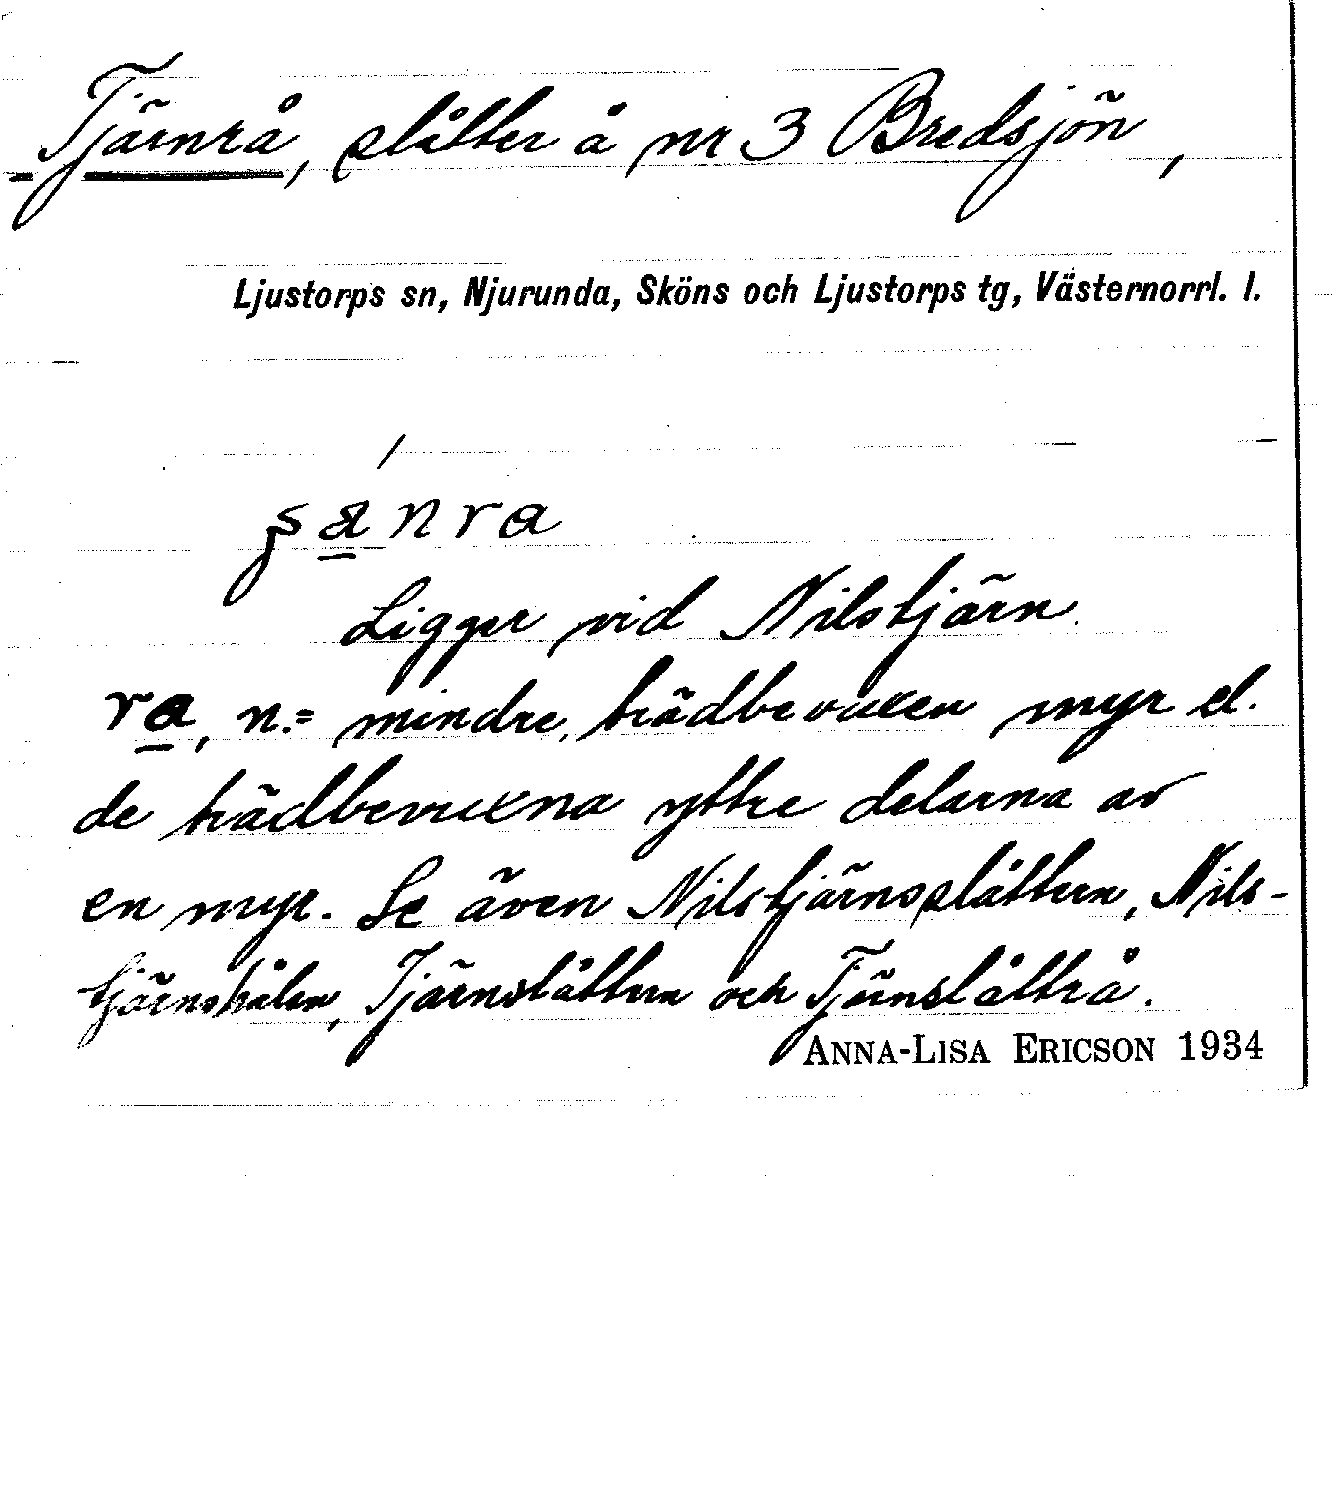 Tjärnrå, slåtter å nr 3 Bredsjön,
Ljustorps sn, Njurunda, Sköns och Ljustorps tg, Västernorrl. l.
Ligger vid Nilstjärn.
ra, n.= mindre, trädbevuxen myr el.
de trädbevuxna yttre delarna av
en myr. Se även Nilstjärnsslåttern, Nils-
tjärnshålen, Tjärnslåttern och Tjärnslåttrå.
ANNA-LISA ERICSON 1934